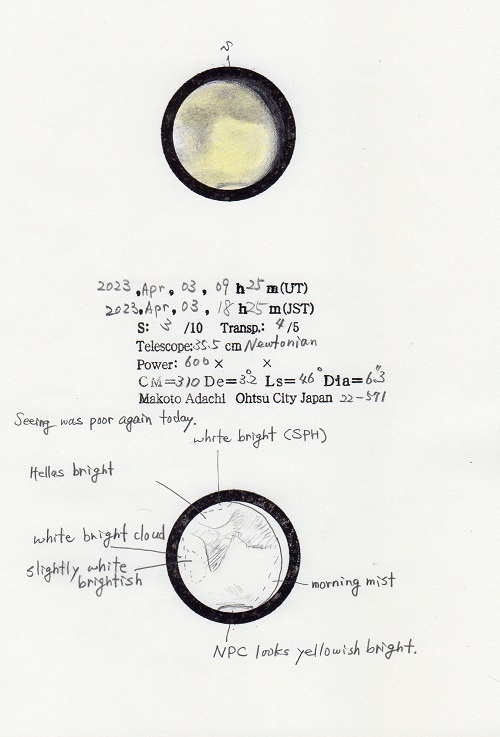 S
2023, Apr, 03, 09 h 25 m (UT)
2023, Apr, 03, 18 h 25 m (JST)
S: 3 /10 Transp.: 4/5
Telescope: 35.5 cm Newtonian
Power: 600 × ×
CM=310 De=3.2° Ls=46° Dia=6.3"
Makoto Adachi Ohtsu City Japan 22-571
Seeing was poor again today.
white bright (SPH)
Hellas bright
white bright cloud
slightly white
brightish
morning mist
NPC looks yellowish bright.